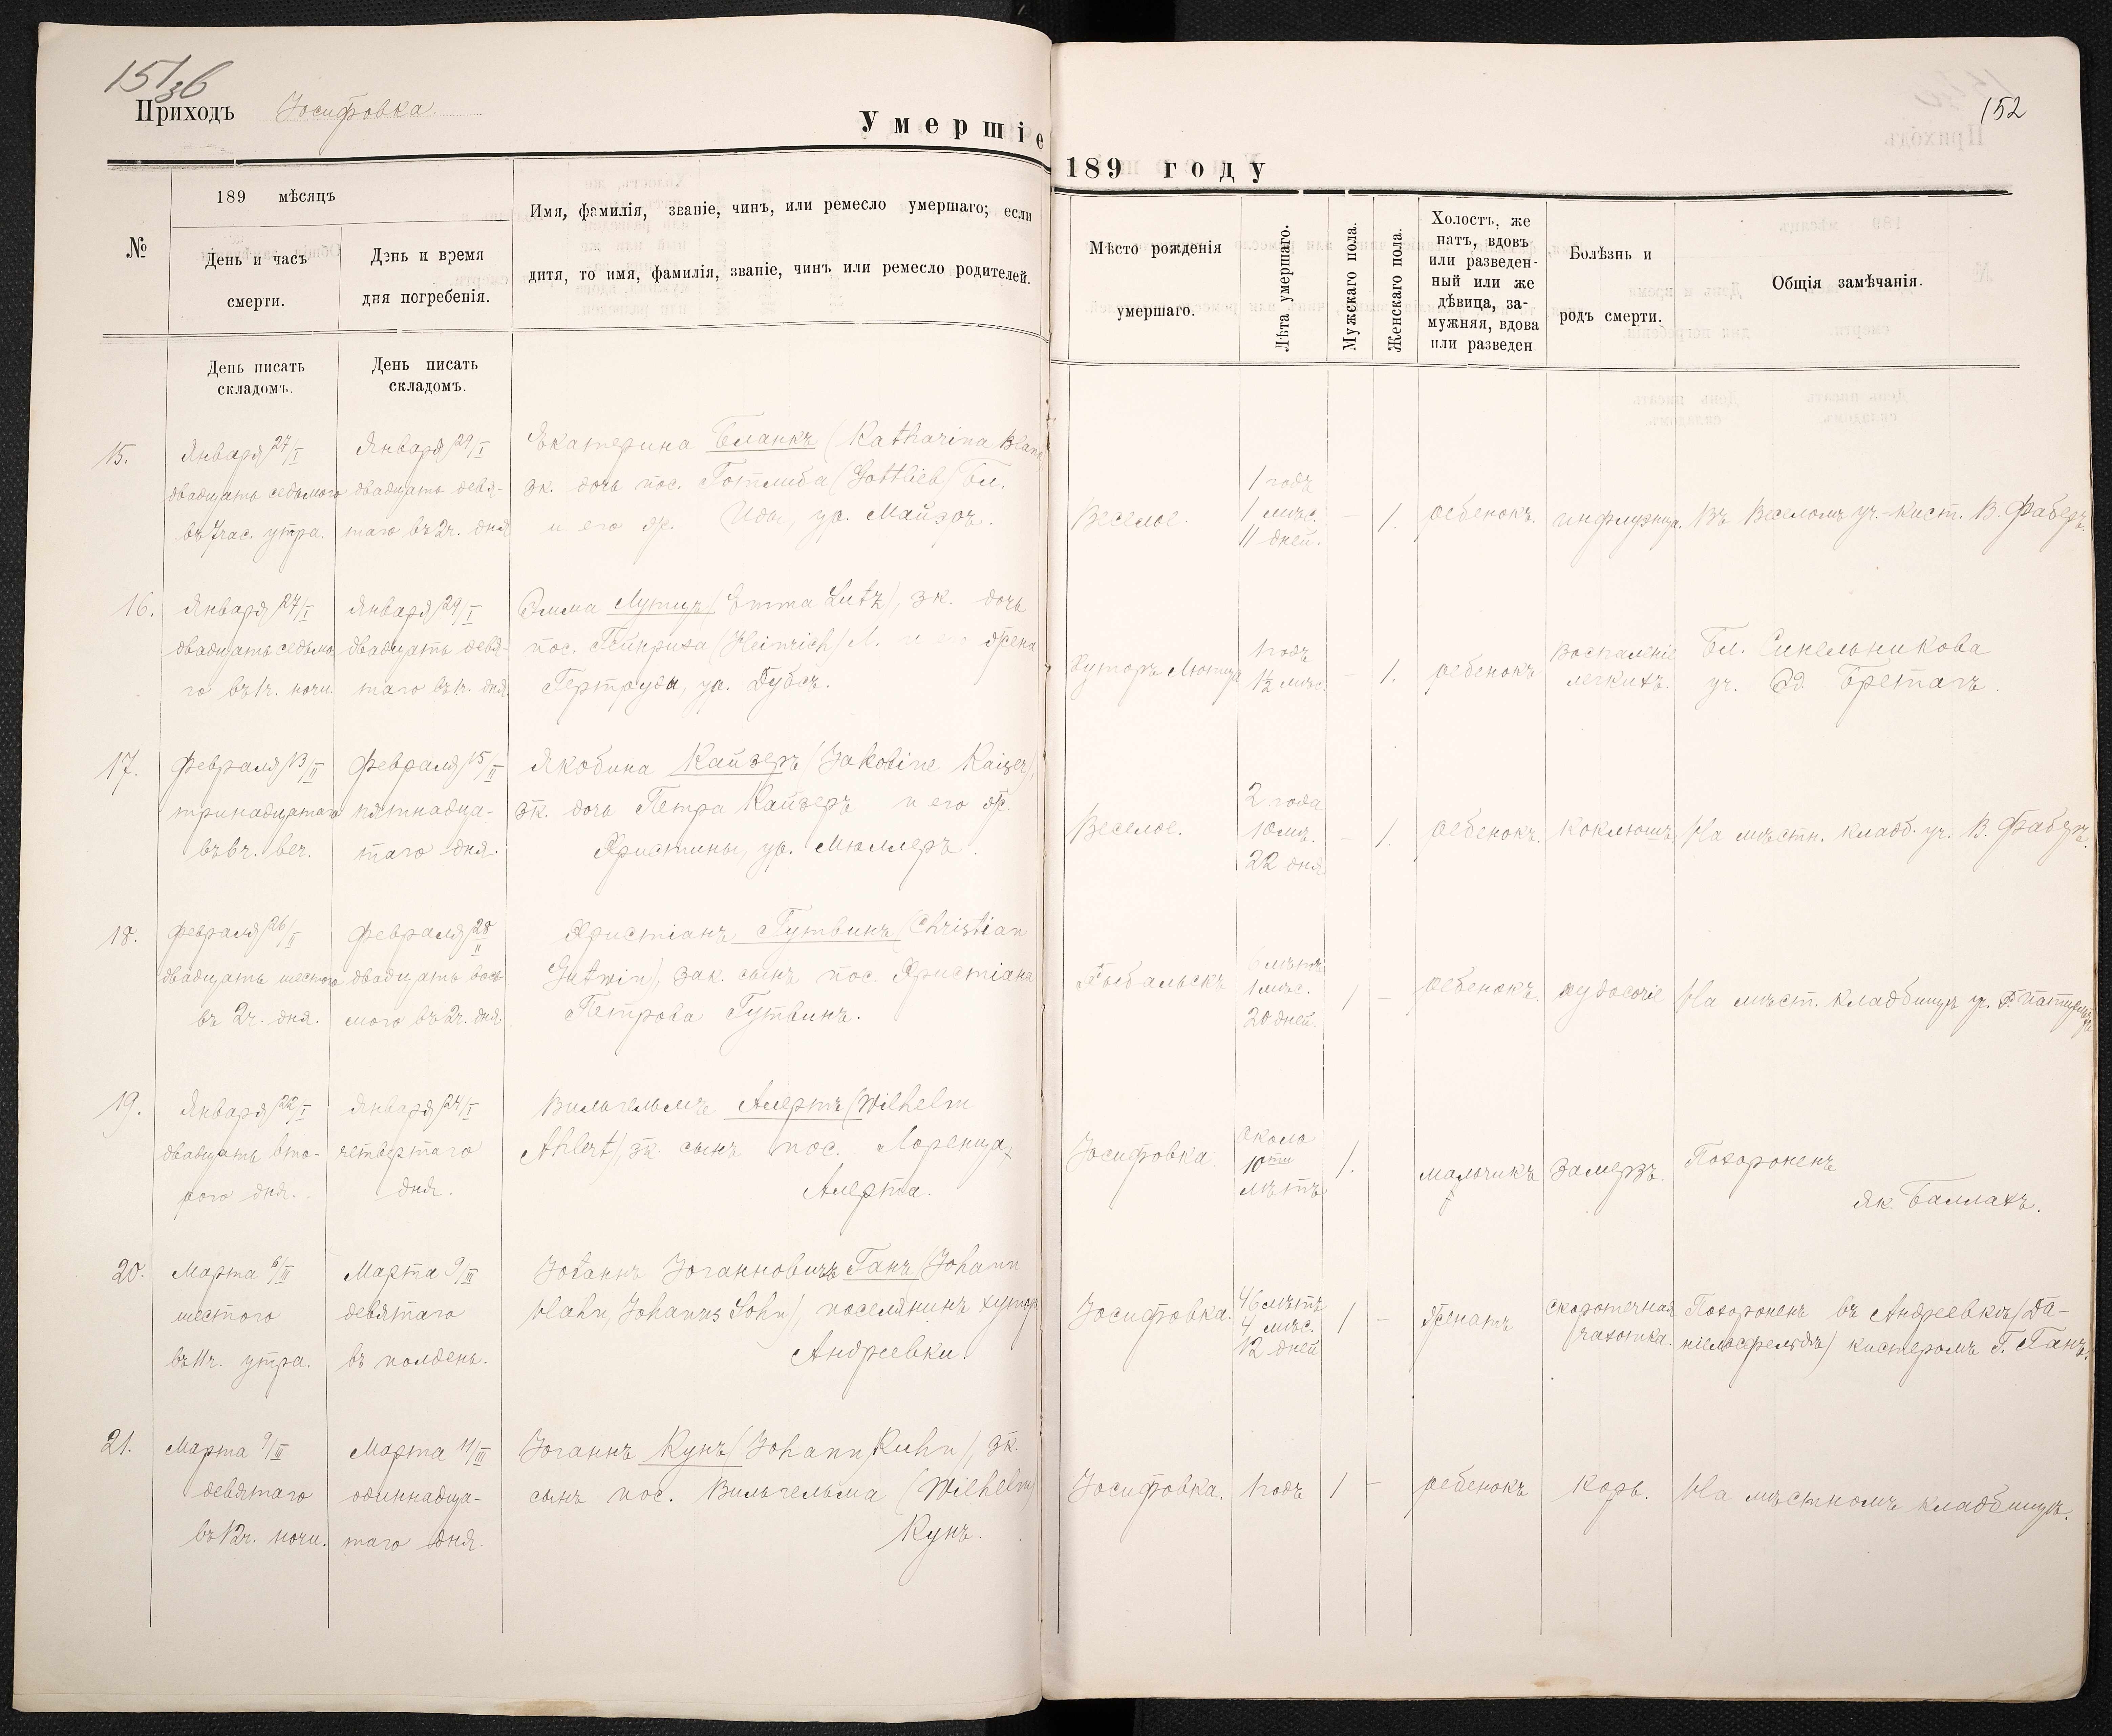 151 зв
Приходъ Іосифовка.
Умершіе
№
189 мѣсяцъ
День и часъ
смерти.
День и время
дня погребенія.
Имя, фамилія, званіе, чинъ, или ремесло умершаго; если
дитя, то имя, фамилія, званіе, чинъ или ремесло родителей.
День писать
складомъ.
День писать
складомъ.
15.
Января 27/I
двадцать седьмого
въ 7 час. утра.
Января 29/I
двадцать девя-
таго въ 2 ч. дня
Екатерина Бланкъ (Katharina Blank
зк. дочь пос. Готлиба (Gottlieb) Бл.
и его ж. Иды, ур. Майзоч.
16.
Января 27/I
двадцать седьмо
го въ 1 ч. ночи.
Января 29/I
двадцать девя-
таго въ 1 ч. дня.
Эмма Лутцъ (Emma Lutz), зк. дочь
пос. Гейнриха (Heinrich) Л. и его жена
Гертруды, ур. Дубсъ.
17.
Февраля 13/II
тринадцатаго
въ 6 ч. веч.
Февраля 15/II
пятнадца-
таго дня.
Якобина Кайзеръ (Jakobine Kaiser),
зк. дочь Петра Кайзеръ и его ж.
Христины, ур. Мюллеръ.
18.
Февраля 26/II
двадцать шестого
въ 2 ч. дня.
Февраля 28/II
двадцать вось-
мого въ 2 ч. дня.
Христіанъ Гутвинъ (Christian
Gutwin), зак. сынъ пос. Христіана
Петрова Гутвинъ.
19.
Января 22/I
двадцать вто-
рого дня.
Января 24/I
четвертаго
дня.
Вильгельмъ Алертъ (Wilhelm
Ahlert), зк. сынъ пос. Лоренца
Алерта.
20.
Марта 6/III
шестого
въ 11 ч. утра.
Марта 9/III
девятаго
въ полдень.
Іоганнъ Іоганновичъ Ганъ (Johann
Hahn, Johanns Sohn), поселянинъ хутор
Андреевки.
21.
Марта 9/III
девятаго
въ 12 ч. ночи.
Марта 11/III
одиннадца-
таго дня.
Іоганнъ Кунъ (Johann Kuhn), зк.
сынъ пос. Вильгельма (Wilhelm)
Кунъ.
152
189 году
Мѣсто рожденія
умершаго.
Лѣта умершаго.
Мужскаго пола.
Женскаго пола.
Холостъ, же
натъ, вдовъ
или разведен-
ный или же
дѣвица, за-
мужняя, вдова
или разведен
Болѣзнь и
родъ смерти.
Общія замѣчанія.
Веселое.
1 годъ
1 мѣс.
11 дней.
- 1.
ребенокъ.
инфлуэнца.
Въ Веселомъ уч.-кист. В. Фаберъ.
Хуторъ Лютца
1 годъ
1½ мѣс.
- 1.
ребенокъ
Воспаленіе
легкихъ.
Бл. Синельникова
уч. Эд. Бретагъ.
Веселое.
2 года
10 мѣ.
22 дня
- 1.
ребенокъ.
Коклюшъ.
На мѣстн. кладб. уч. В. Фаберъ.
Рыбальскъ
6 лѣтъ
1 мѣс.
20 дней.
1 -
ребенокъ.
худосочіе
На мѣст. Кладбищѣ уч.
Іосифовка.
Около
10ти
лѣтъ
1.
мальчикъ
Замерзъ.
Похороненъ
Як. Баллахъ.
Іосифовка.
46 лѣтъ
4 мѣс.
12 дней
1 -
Женатъ
Скоротечная
чахотка.
Похороненъ въ Андреевкѣ (Да-
ніельсфельдъ) кистеромъ Г. Ганъ.
Іосифовка.
1 годъ
1 -
ребенокъ
Корь.
На мѣстномъ кладбищѣ.